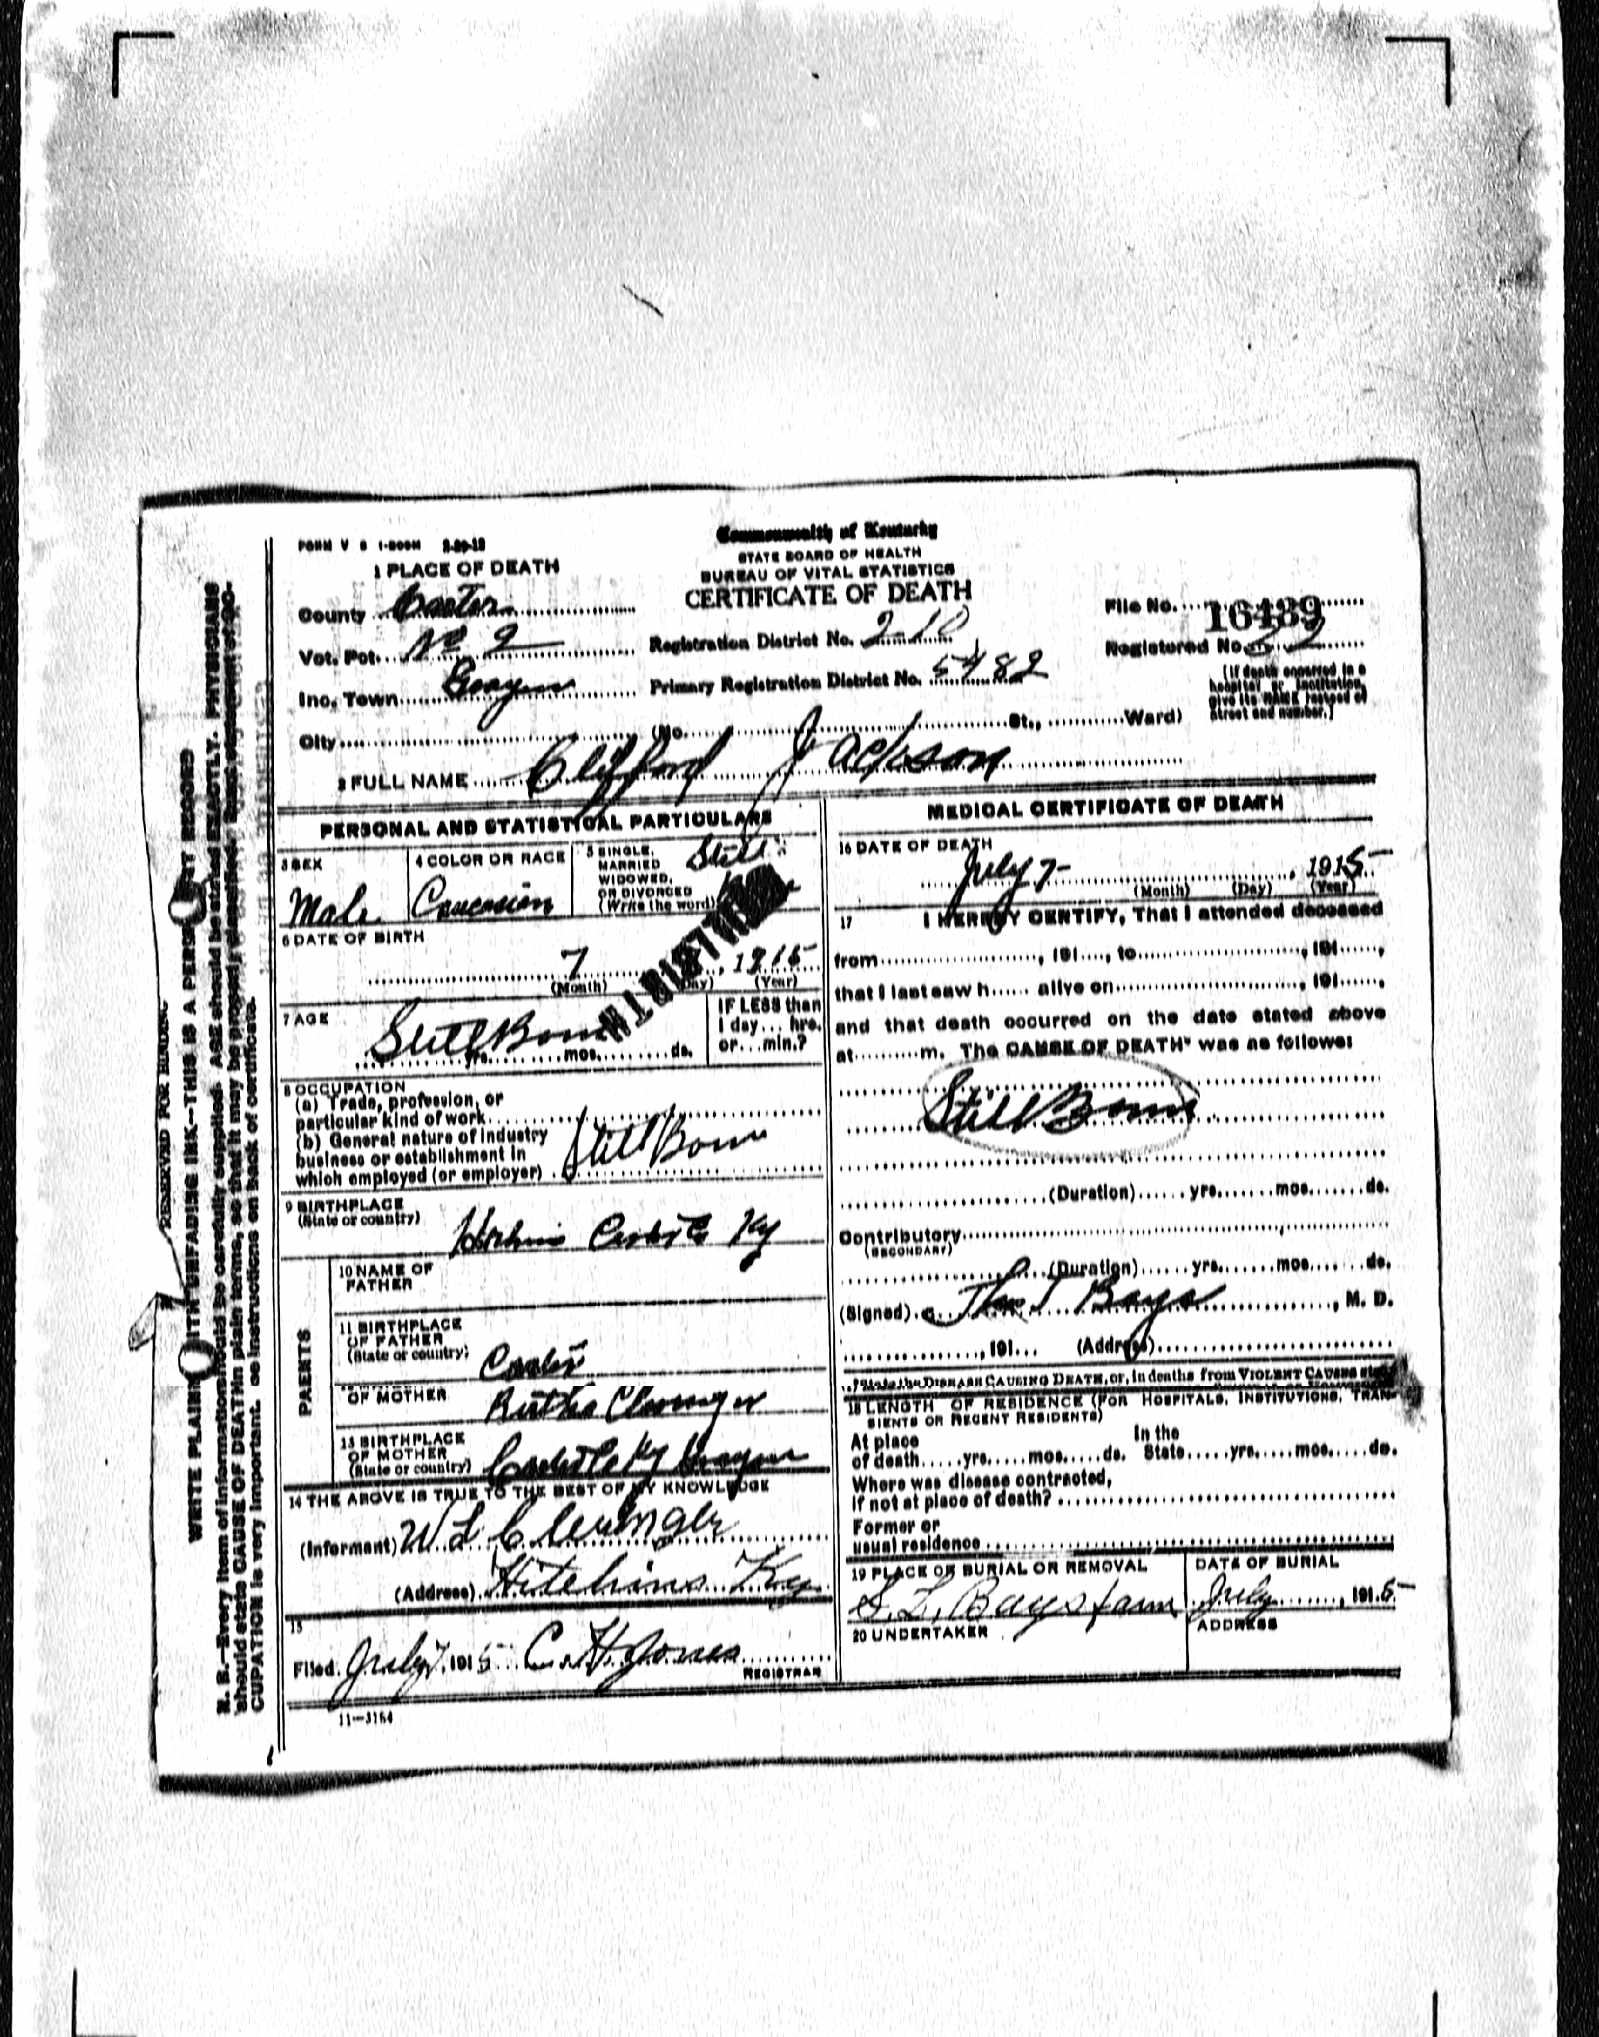 FORM V S 1-500M 2-20-12
Commonwealth of Kentucky
STATE BOARD OF HEALTH
BUREAU OF VITAL STATISTICS
CERTIFICATE OF DEATH
1 PLACE OF DEATH
County Carter
Vot. Pct. No 2
Inc. Town Grayson
City (No. St., Ward)
Registration District No. 210
Primary Registration District No. 5482
File No. 16489
Registered No. 22
(If death occurred in a hospital or institution, give its NAME instead of street and number.)
2 FULL NAME Clifford Jackson
PERSONAL AND STATISTICAL PARTICULARS
3 SEX
Male
4 COLOR OR RACE
Caucasian
5 SINGLE, MARRIED WIDOWED, OR DIVORCED (Write the word)
Still
6 DATE OF BIRTH
7 , 1915
(Month) (Day) (Year)
7 AGE
Still Born
yrs. mos. ds.
IF LESS than 1 day... hrs. or...min.?
8 OCCUPATION
(a) Trade, profession, or
particular kind of work
(b) General nature of industry
business or establishment in
which employed (or employer)
Still Born
9 BIRTHPLACE
(State or country)
Ky
PARENTS
10 NAME OF FATHER
11 BIRTHPLACE OF FATHER
(State or country)
Carter
OF MOTHER
13 BIRTHPLACE OF MOTHER
(State or country)
Carter Co Ky Grayson
14 THE ABOVE IS TRUE TO THE BEST OF MY KNOWLEDGE
(Informant) W L Clevinger
(Address) Hitchins Ky
15
Filed July 7, 1915 C. H. Jones
REGISTRAR
11-3184
MEDICAL CERTIFICATE OF DEATH
16 DATE OF DEATH
July 7 , 1915
(Month) (Day) (Year)
17 I HEREBY CERTIFY, That I attended deceased
from , 191 , to , 191 ,
that I last saw h alive on , 191 ,
and that death occurred on the date stated above
at m. The CAUSE OF DEATH* was as follows:
Still Born
(Duration) yrs. mos. ds.
Contributory
(SECONDARY)
(Duration) yrs. mos. ds.
(Signed) Bays , M. D.
, 191 (Address)
*State the DISEASE CAUSING DEATH, or, in deaths from VIOLENT CAUSES
18 LENGTH OF RESIDENCE (FOR HOSPITALS, INSTITUTIONS, TRANSIENTS OR RECENT RESIDENTS)
At place of death yrs. mos. ds. In the State yrs. mos. ds.
Where was disease contracted,
if not at place of death?
Former or
usual residence
19 PLACE OF BURIAL OR REMOVAL
S. L. Bays farm
DATE OF BURIAL
July , 1915
20 UNDERTAKER
ADDRESS
RESERVED FOR BINDING
WRITE PLAINLY WITH UNFADING INK—THIS IS A PERMANENT RECORD
N. B.—Every item of information should be carefully supplied. AGE should be stated EXACTLY. PHYSICIANS
should state CAUSE OF DEATH in plain terms, so that it may be properly classified. Exact statement of OC-
CUPATION is very important. See instructions on back of certificate.